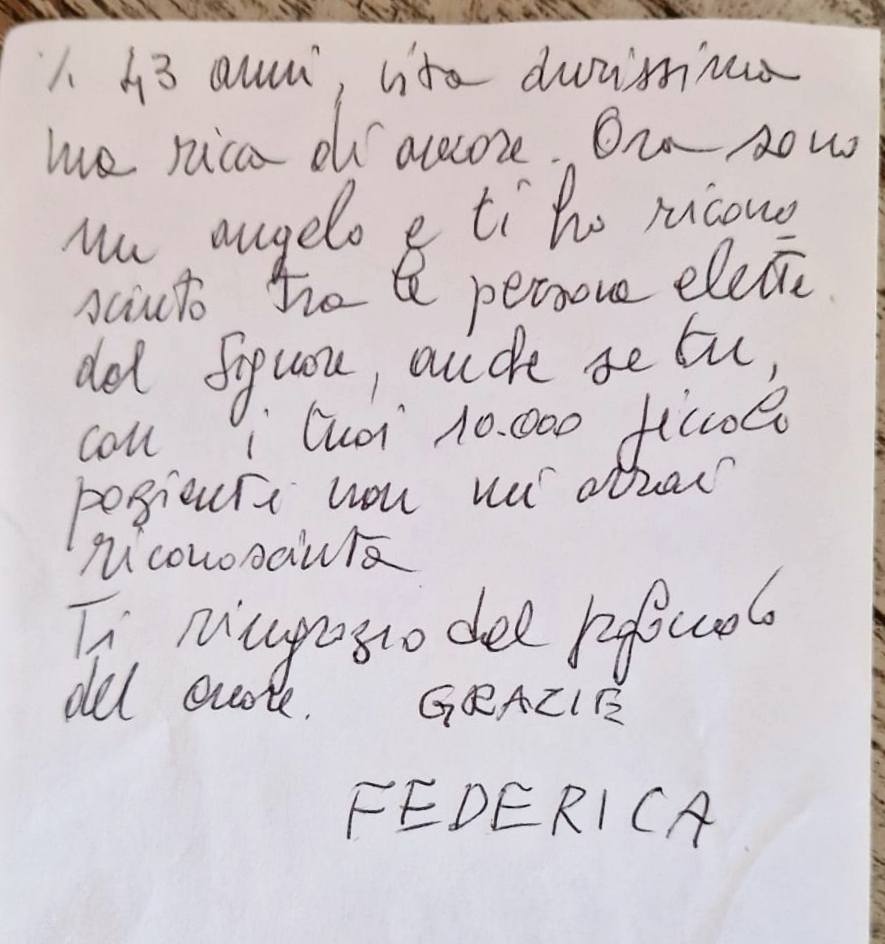 /. 43 anni, vita durissima
ma ricca di amore. Ora sono
un angelo e ti ho ricono
sciuto tra le persone elette
del Signore, anche se tu,
con i tuoi 10.000 piccoli
pazienti non mi avrai
riconosciuta
Ti ringrazio dal profondo
del cuore. GRAZIE
FEDERICA